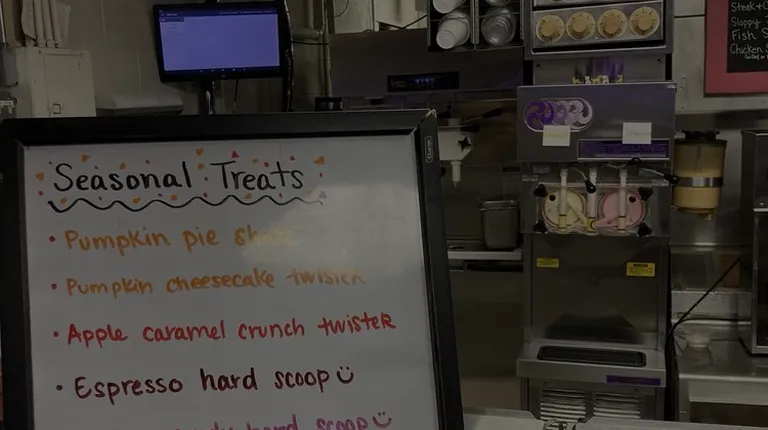 Seasonal Treats
• Pumpkin pie shake
• Pumpkin cheesecake twister
• Apple caramel crunch twister
• Espresso hard scoop
hard scoop
Steak +
Sloppy
Fish
Chicken